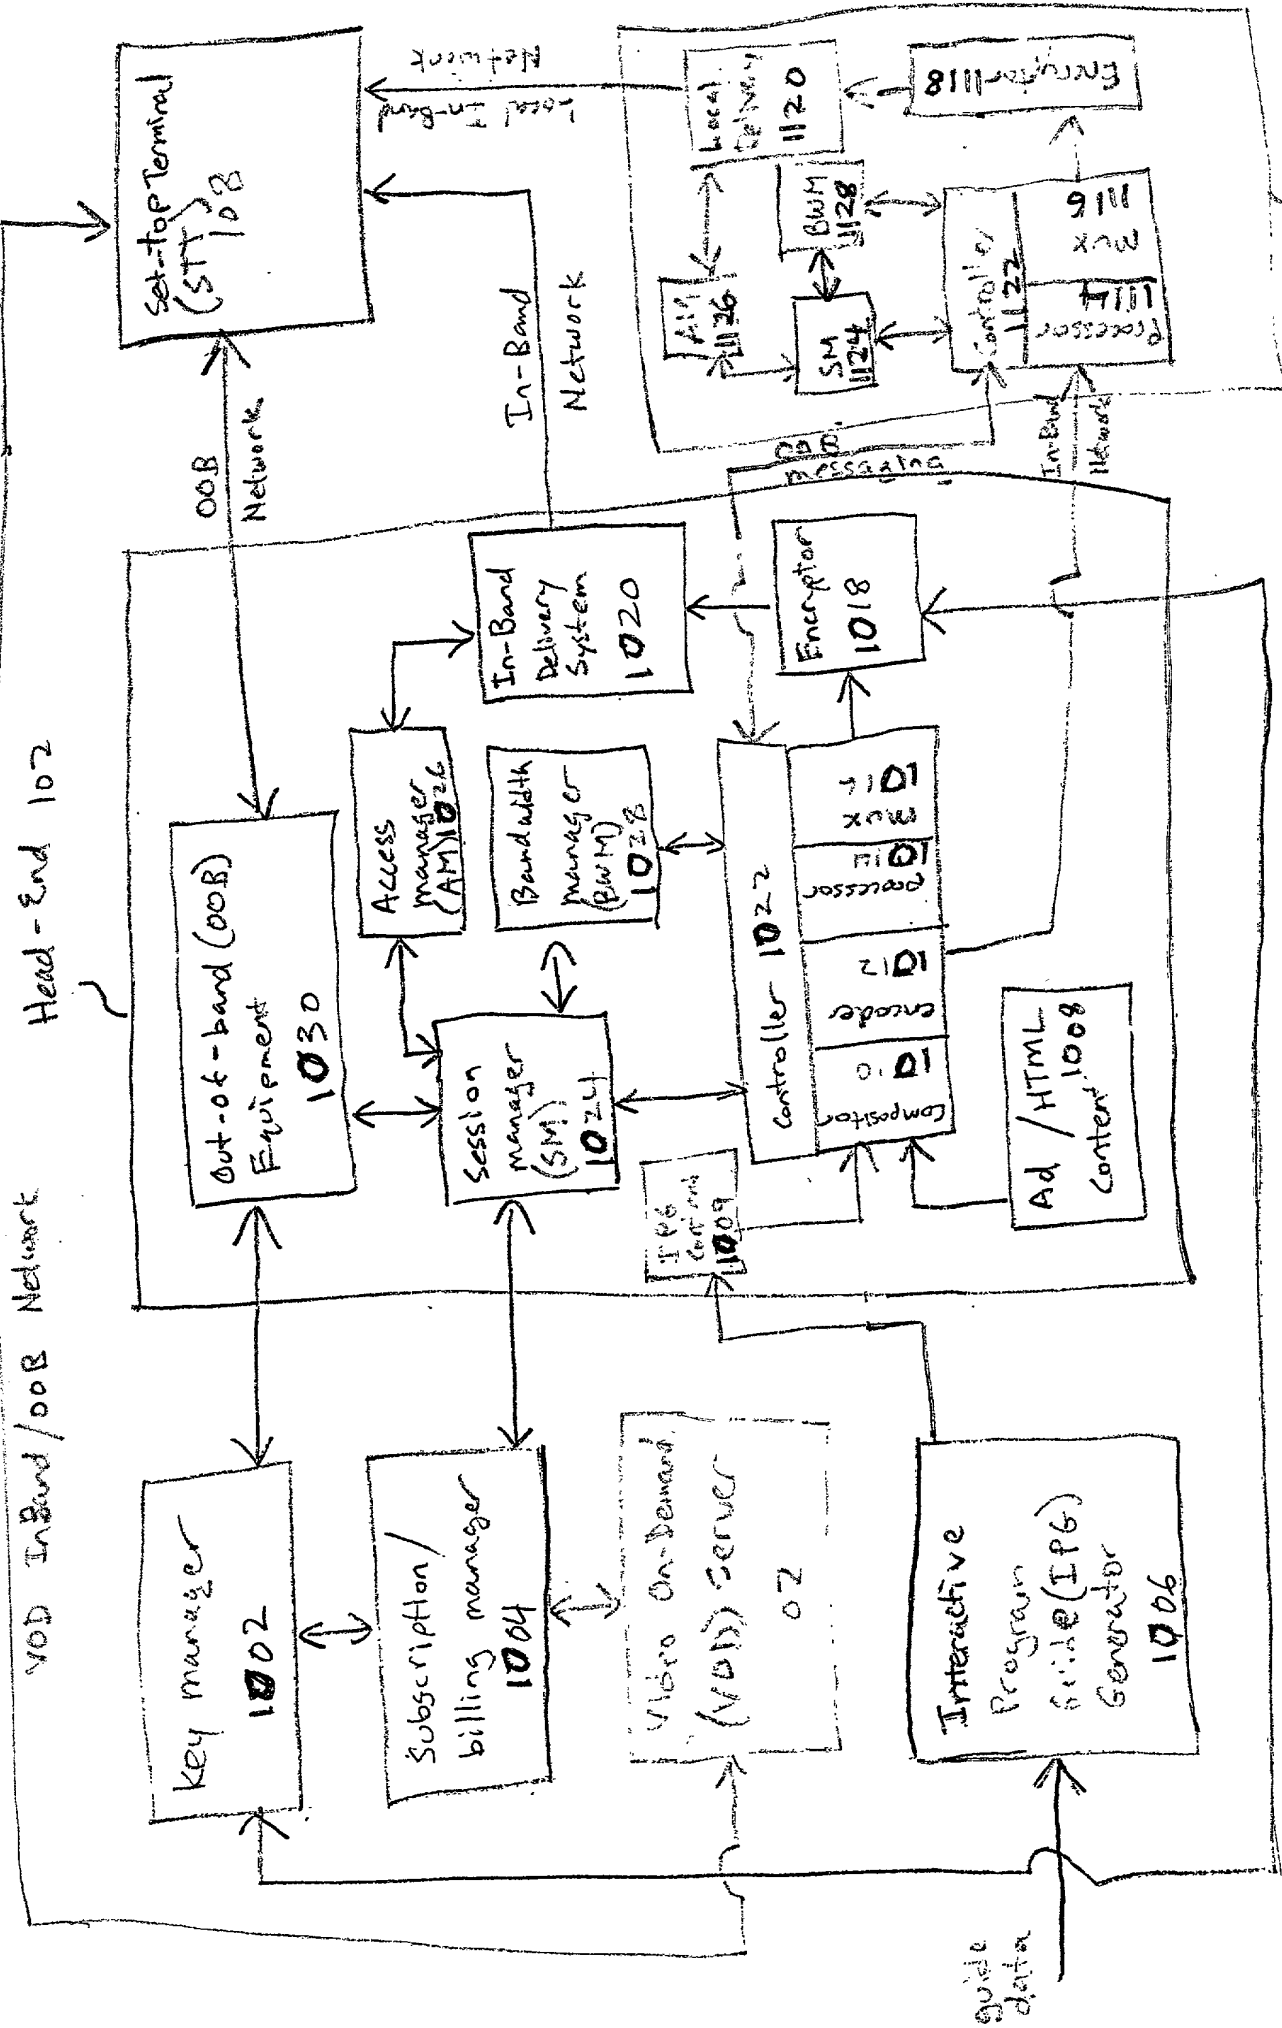 VOD InBand/OOB Network
Head-End 102
Key manager
1002
Subscription/
billing manager
1004
Video On-Demand
(VOD) Server
02
Interactive
Program
Guide (IPG)
Generator
1006
guide
data
Out-of-band (OOB)
Equipment
1030
Session
manager
(SM)
1024
Access
manager
(AM) 1026
Bandwidth
manager
(BWM)
1028
In-Band
Delivery
System
1020
Encryptor
1018
Controller 1022
Compositor
1010
encoder
1012
processor
1014
mux
1016
IPG
1009
Ad / HTML
Content 1008
OOB
Network
In-Band
Network
Set-top Terminal
(STT)
108
Local In-Band
Network
messaging
In-Band
Network
Local
Delivery
1120
Encryptor 1118
AM
1126
BWM
1128
SM
1124
Controller
1122
Processor
1114
mux
1116